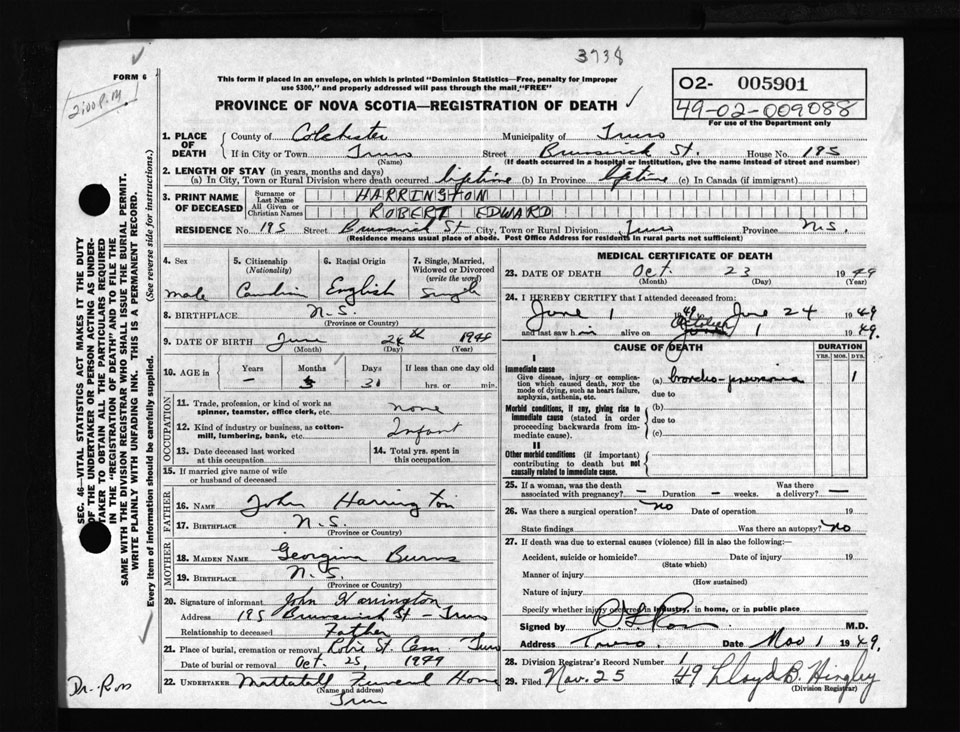 3738
FORM 6
2:00 P.M.
This form if placed in an envelope, on which is printed "Dominion Statistics—Free, penalty for improper
use $300," and properly addressed will pass through the mail "FREE"
PROVINCE OF NOVA SCOTIA—REGISTRATION OF DEATH ✓
02- 005901
49-02-009088
For use of the Department only
1. PLACE OF DEATH County of Colchester Municipality of Truro
If in City or Town Truro Street Brunswick St. House No. 195
(Name) (If death occurred in a hospital or institution, give the name instead of street and number)
2. LENGTH OF STAY (in years, months and days)
(a) In City, Town or Rural Division where death occurred lifetime (b) In Province lifetime (c) In Canada (if immigrant)
3. PRINT NAME OF DECEASED Surname or Last Name HARRINGTON
All Given or Christian Names ROBERT EDWARD
RESIDENCE No. 195 Street Brunswick St City, Town or Rural Division Truro Province N.S.
(Residence means usual place of abode. Post Office Address for residents in rural parts not sufficient)
4. Sex male
5. Citizenship (Nationality) Canadian
6. Racial Origin English
7. Single, Married, Widowed or Divorced (write the word) Single
8. BIRTHPLACE N.S.
(Province or Country)
9. DATE OF BIRTH June 24th
(Month) (Day) (Year)
10. AGE in Years — Months Days If less than one day old
hrs. or min.
OCCUPATION
11. Trade, profession, or kind of work as spinner, teamster, office clerk, etc. none
12. Kind of industry or business, as cotton-mill, lumbering, bank, etc. Infant
13. Date deceased last worked at this occupation
14. Total yrs. spent in this occupation
15. If married give name of wife or husband of deceased
FATHER
16. NAME John Harrington
17. BIRTHPLACE N.S.
(Province or Country)
MOTHER
18. MAIDEN NAME Georgina Burns
19. BIRTHPLACE N.S.
(Province or Country)
20. Signature of informant John Harrington
Address 195 Brunswick St - Truro
Relationship to deceased Father
21. Place of burial, cremation or removal Robie St. Cem. Truro
Date of burial or removal Oct. 25, 1949
22. UNDERTAKER Mattatall Funeral Home
(Name and address)
Truro
MEDICAL CERTIFICATE OF DEATH
23. DATE OF DEATH Oct. 23 1949
(Month) (Day) (Year)
24. I HEREBY CERTIFY that I attended deceased from:
June 1 1949 June 24 1949
and last saw him alive on October 1 1949.
CAUSE OF DEATH DURATION
YRS. MOS. DYS.
I
Immediate cause
Give disease, injury or complication which caused death, NOT the mode of dying, such as heart failure, asphyxia, asthenia, etc.
(a) broncho-pneumonia 1
due to
Morbid conditions, if any, giving rise to immediate cause (stated in order proceeding backwards from immediate cause).
(b)
due to
(c)
II
Other morbid conditions (if important) contributing to death but not causally related to immediate cause.
25. If a woman, was the death associated with pregnancy? — Duration — weeks. Was there a delivery? —
26. Was there a surgical operation? no Date of operation 19
State findings Was there an autopsy? no
27. If death was due to external causes (violence) fill in also the following:—
Accident, suicide or homicide? Date of injury 19
(State which)
Manner of injury
(How sustained)
Nature of injury
Specify whether injury occurred in industry, in home, or in public place
Signed by Ross M.D.
Address Truro. Date Nov 1 1949.
28. Division Registrar's Record Number
29. Filed Nov. 25 1949 Lloyd B. Hingley
(Division Registrar)
Dr. Ross
SEC. 46—VITAL STATISTICS ACT MAKES IT THE DUTY
OF THE UNDERTAKER OR PERSON ACTING AS UNDER-
TAKER TO OBTAIN ALL THE PARTICULARS REQUIRED
IN THE "REGISTRATION OF DEATH" AND TO FILE THE
SAME WITH THE DIVISION REGISTRAR WHO SHALL ISSUE THE BURIAL PERMIT.
WRITE PLAINLY WITH UNFADING INK. THIS IS A PERMANENT RECORD.
Every item of information should be carefully supplied. (See reverse side for instructions.)